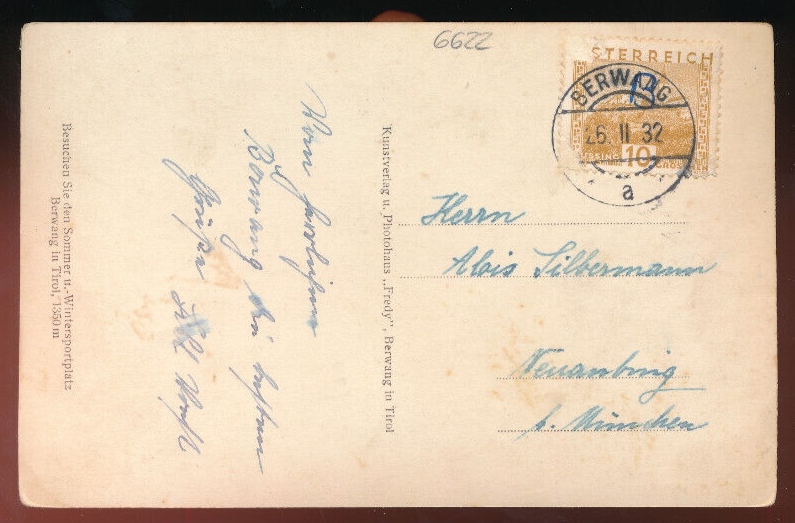 6622
STERREICH
BERWANG
26. II 32
10
a
Besuchen Sie den Sommer u.-Wintersportplatz
Berwang in Tirol, 1350 m
Vom herrlichen
Berwang die besten
Grüße
Kunstverlag u. Photohaus „Fredy”, Berwang in Tirol
Herrn
Alois Silbermann
Neuaubing
b. München